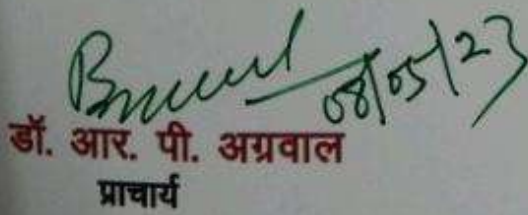 08/05/23
डॉ. आर. पी. अग्रवाल
प्राचार्य